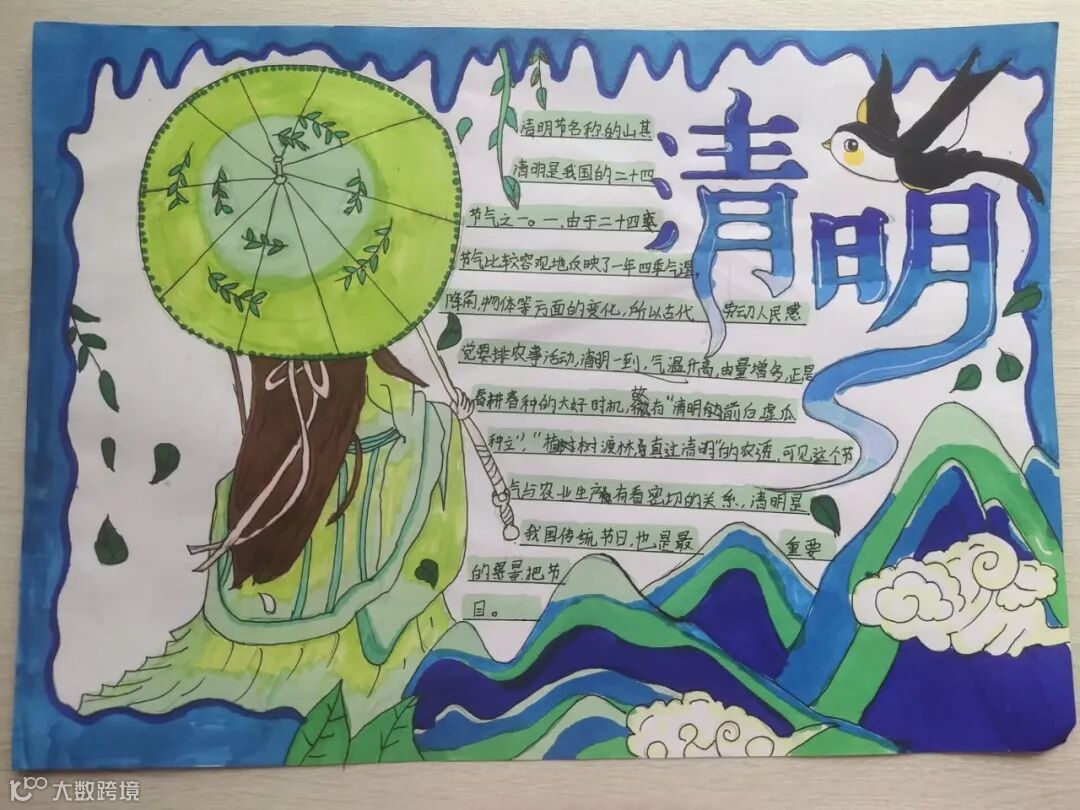 清明
清明节名称的山其
清明是我国的二十四
节气之一。一,由于二十四
节气比较容观地反映了一年四季气温,
降雨,物体等方面的变化,所以古代 劳动人民感
党要排农事活动,清明一到,气温升高,由量增多,正是
春耕春种的大好时机,有"清明前白虚瓜
种立","植树树渡林勇直过清明"的农谚,可见这个节
气与农业生产有看密切的关系,清明是
我国传统节日,也是最 重要
的 把节
目。
大数跨境